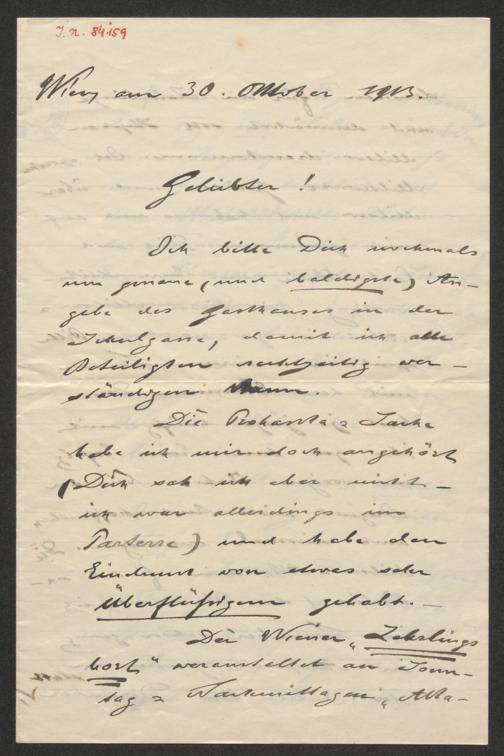 I. N. 84159
Wien, am 30. Oktober 1913.
Geliebter!
Ich bitte Dich nochmals
um genaue (und baldigste) An-
gabe des Gasthauses in der
Schulgasse, damit ich alle
Beteiligten rechtzeitig ver-
ständigen kann.
Die Prohaska-Sache
habe ich mir doch angehört
(Dich sah ich aber nicht –
ich war allerdings im
Parterre) und habe den
Eindruck von etwas sehr
Überflüßigem gehabt. –
Der Wiener „Lehrlings
hort“ veranstaltet an Sonn-
tag-Nachmittagen „Aka-